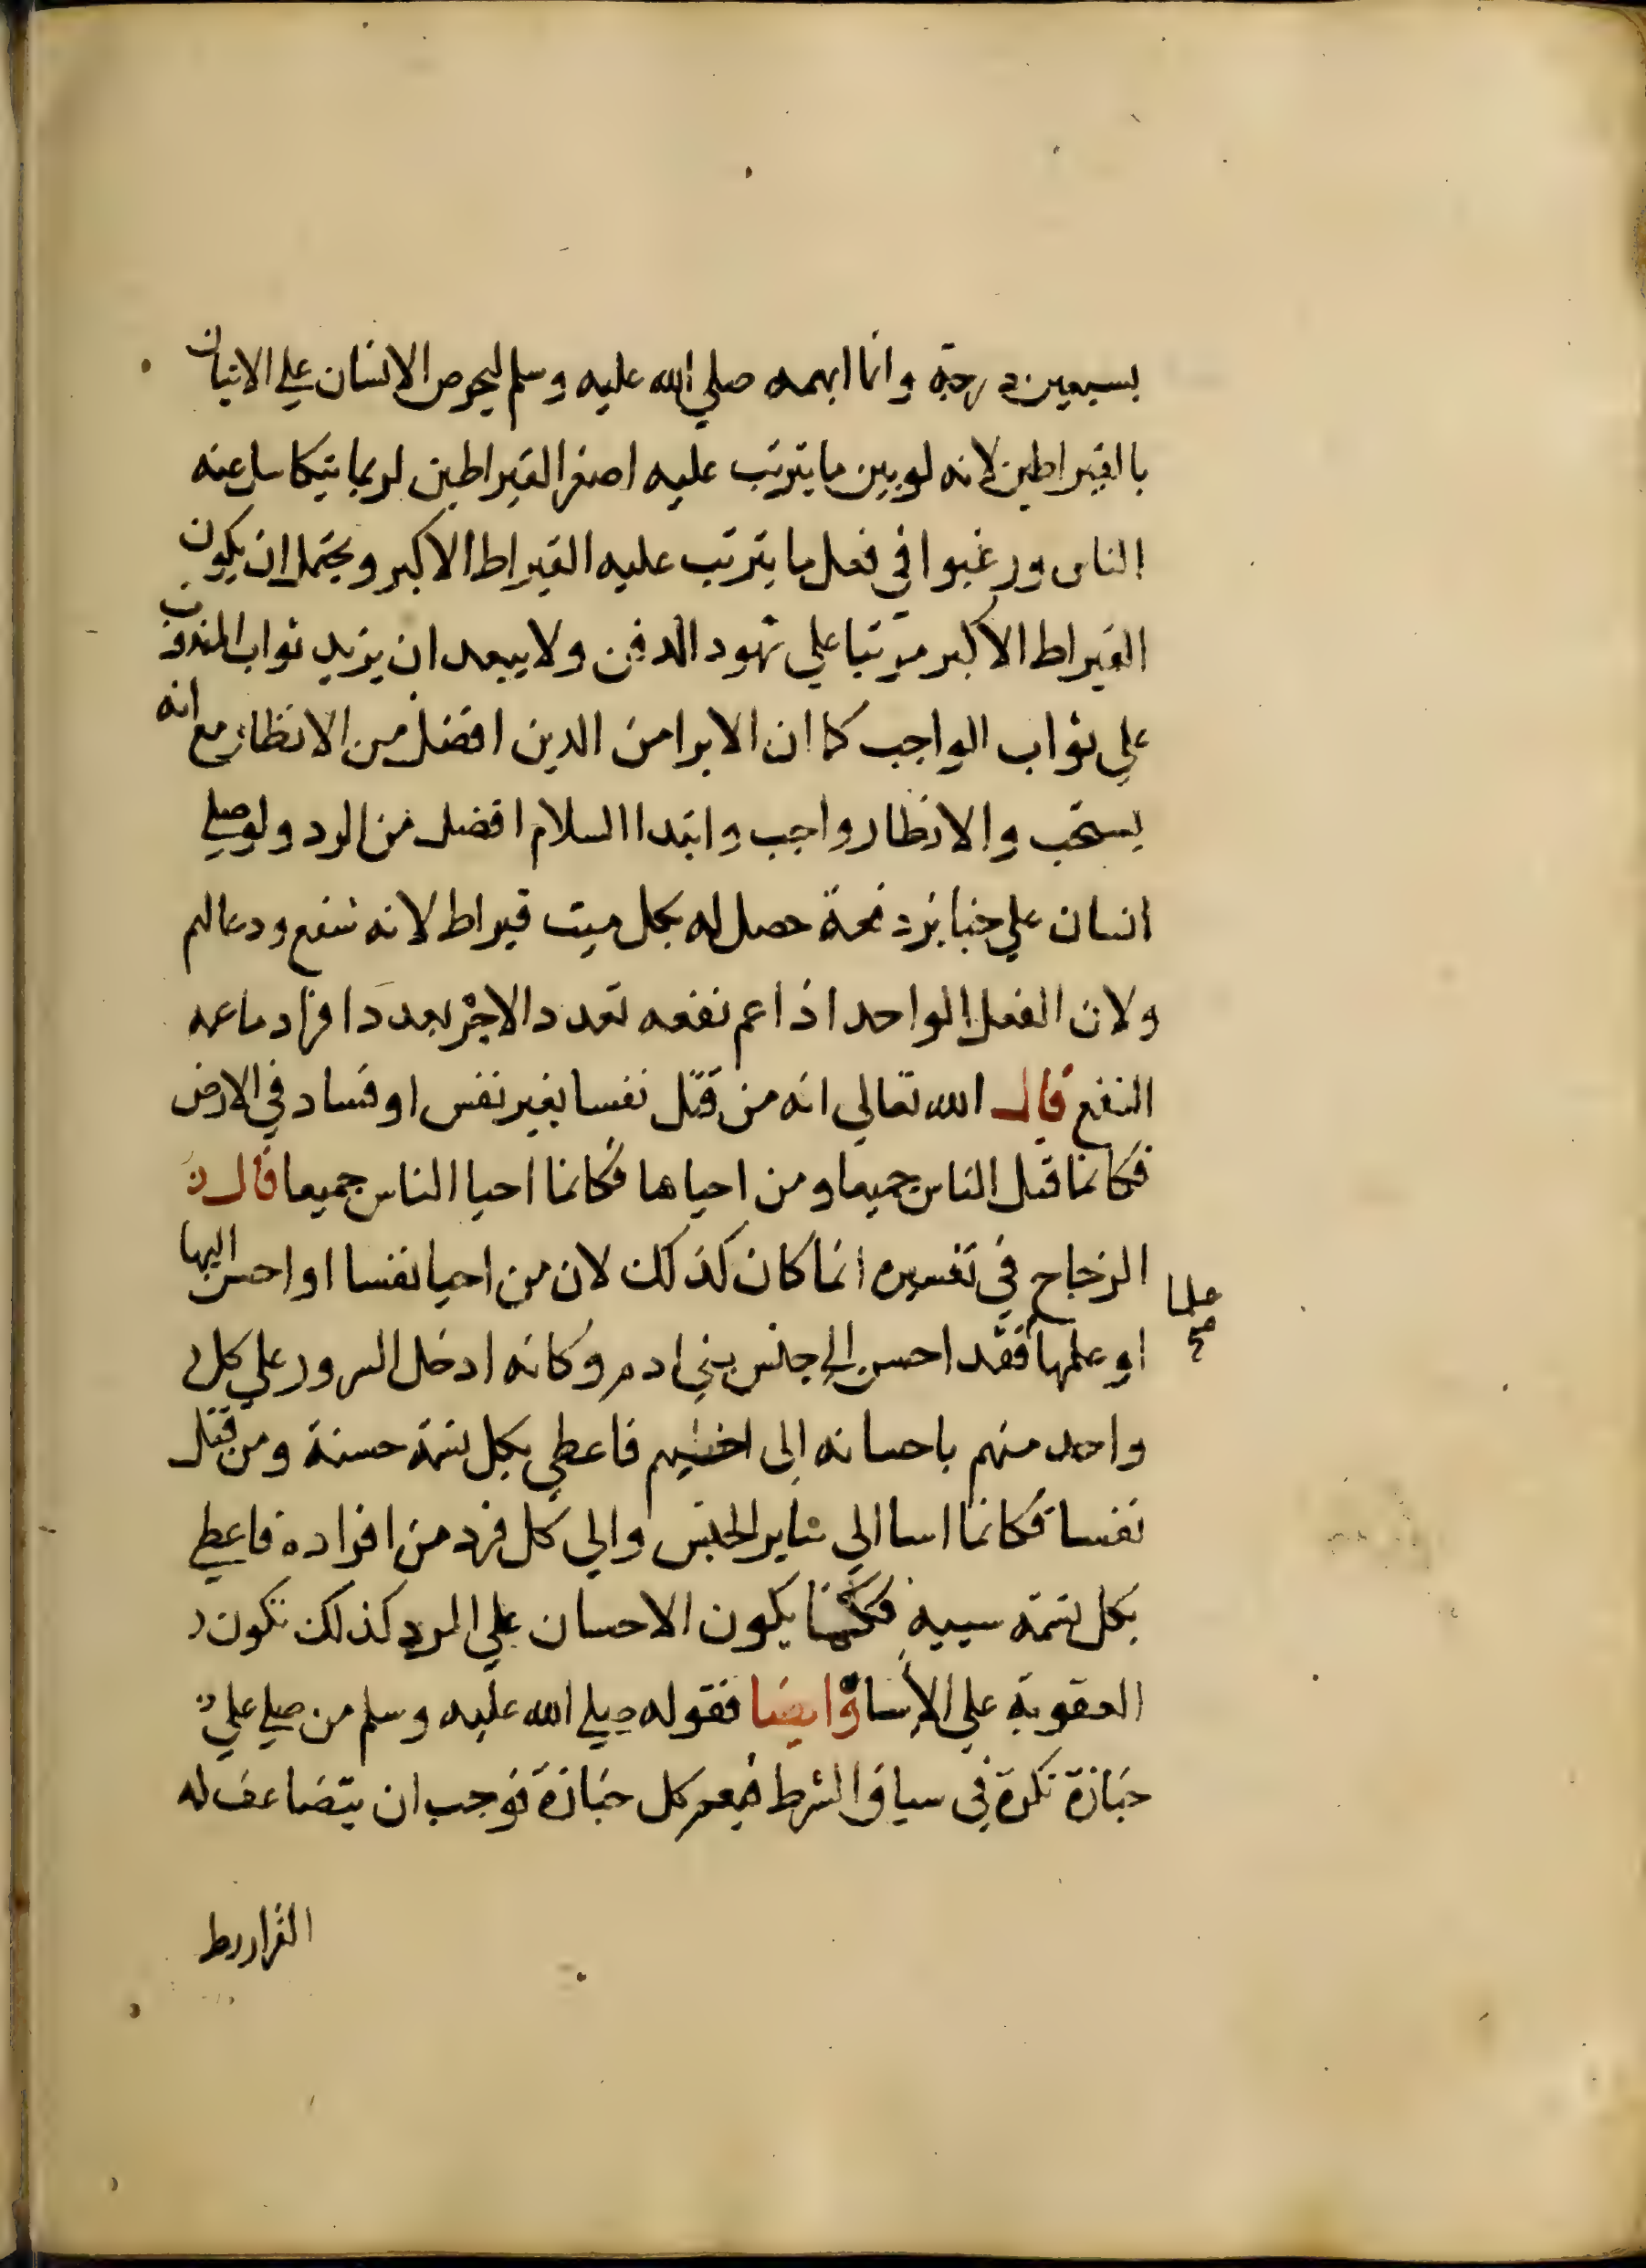 بسبعين درجة وانما ابهمه صلي الله عليه وسلم ليحرص الانسان علي الاتيان
بالقيراطين لانه لو بين ما يترتب عليه اصغر القيراطين لربما يتكاسل عنه
الناس ورغبوا في فعل ما يترتب عليه القيراط الاكبر ويحتمل ان يكون
القيراط الاكبر مرتبا علي شهود الدفن ولا يبعد ان يزيد ثواب المندوب
علي ثواب الواجب كما ان الابرا من الدين افضل من الانظار مع انه
يستحب والانظار واجب وابتدا السلام افضل من الرد ولو صلي
انسان علي جنايز دفعة حصل له بكل ميت قيراط لانه شفع ودعا لهم
ولان الفعل الواحد اذا عم نفعه تعدد الاجر بعدد افراد ما عمه
النفع قال الله تعالي انه من قتل نفسا بغير نفس او فساد في الارض
فكانما قتل الناس جميعا ومن احياها فكانما احيا الناس جميعا قال
الزجاج في تفسيره انما كان كذلك لان من احيا نفسا او احسن اليها
او علمها فقد احسن الي جنس بني ادم وكانه ادخل السرور علي كل
علما
صح
واحد منهم باحسانه الى اخيهم فاعطي بكل نسمة حسنة ومن قتل
نفسا فكانما اسا الي ساير الجنس والي كل فرد من افراده فاعطي
بكل نسمة سيية فكما يكون الاحسان علي المرء كذلك تكون
العقوبة علي الاساة وايضا فقوله صلي الله عليه وسلم من صلي علي
جنازة نكرة في سياق الشرط فيعم كل جنازة فوجب ان يتضاعف له
القراريط